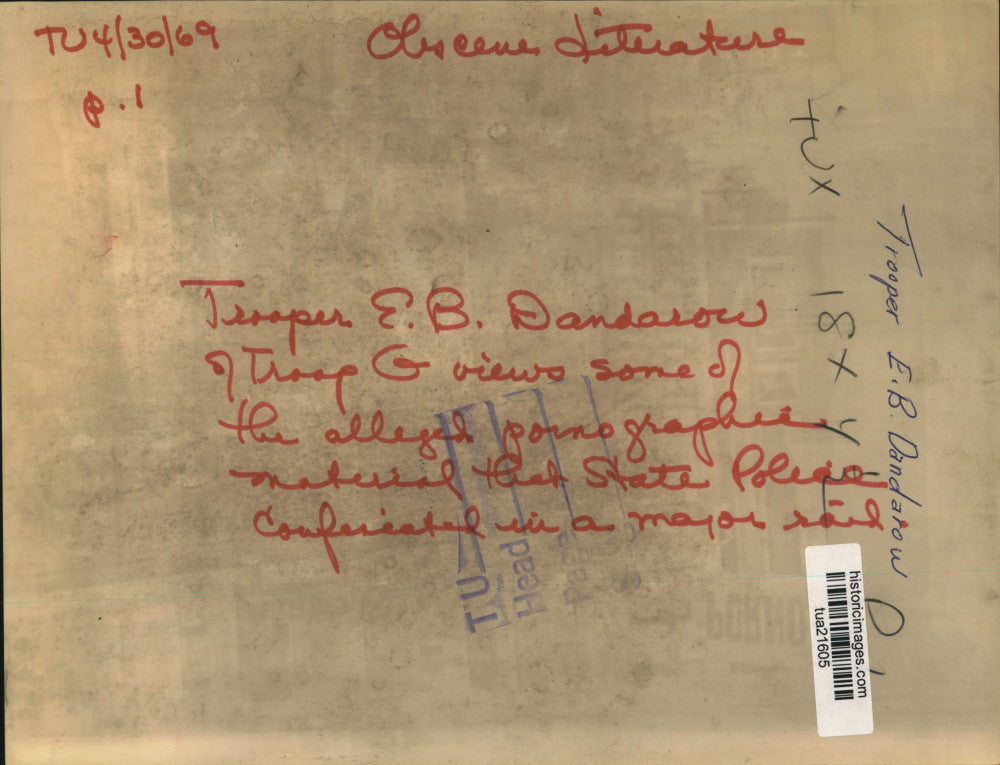 TU 4/30/69
Obscene Literature
p. 1
Trooper E.B. Dandarow
of Troop G views some of
the alleged pornographic
material that State Police
confiscated in a major raid.
TUX
18X
Trooper E.B. Dandarow
TU
Head
historicimages.com
tua21605